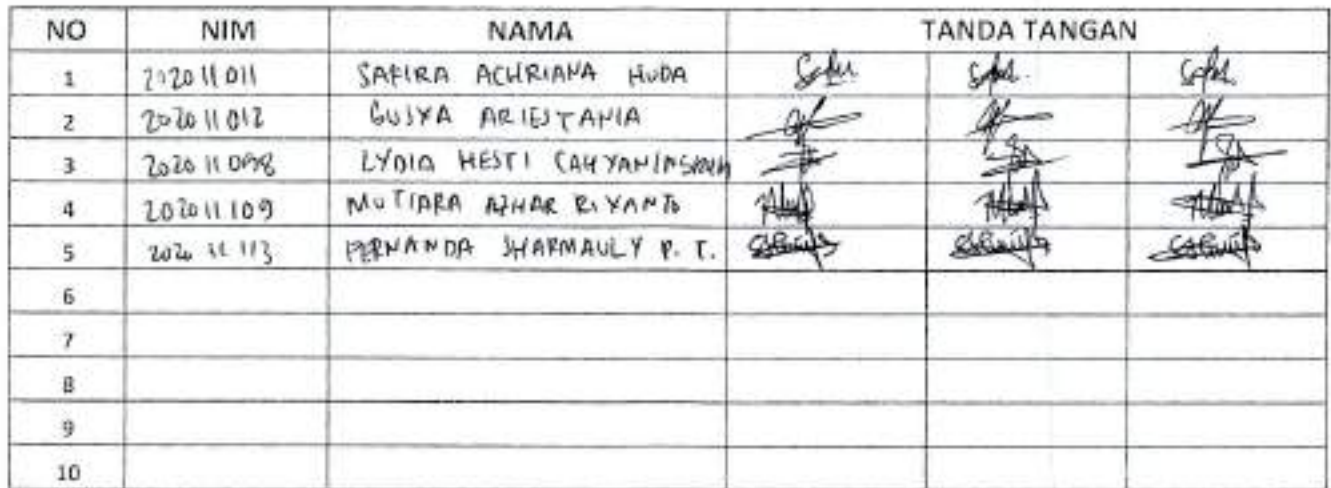 NO NIM NAMA TANDA TANGAN
1 202011011 SAFIRA ACHRIANA HUDA
2 202011012 GUSYA ARIESTANIA
3 LYDIA HESTI
4 202011109 MUTIARA AZHAR RIYANTO
5 202011113 FERNANDA SHARMAULY P. T.
6
7
8
9
10